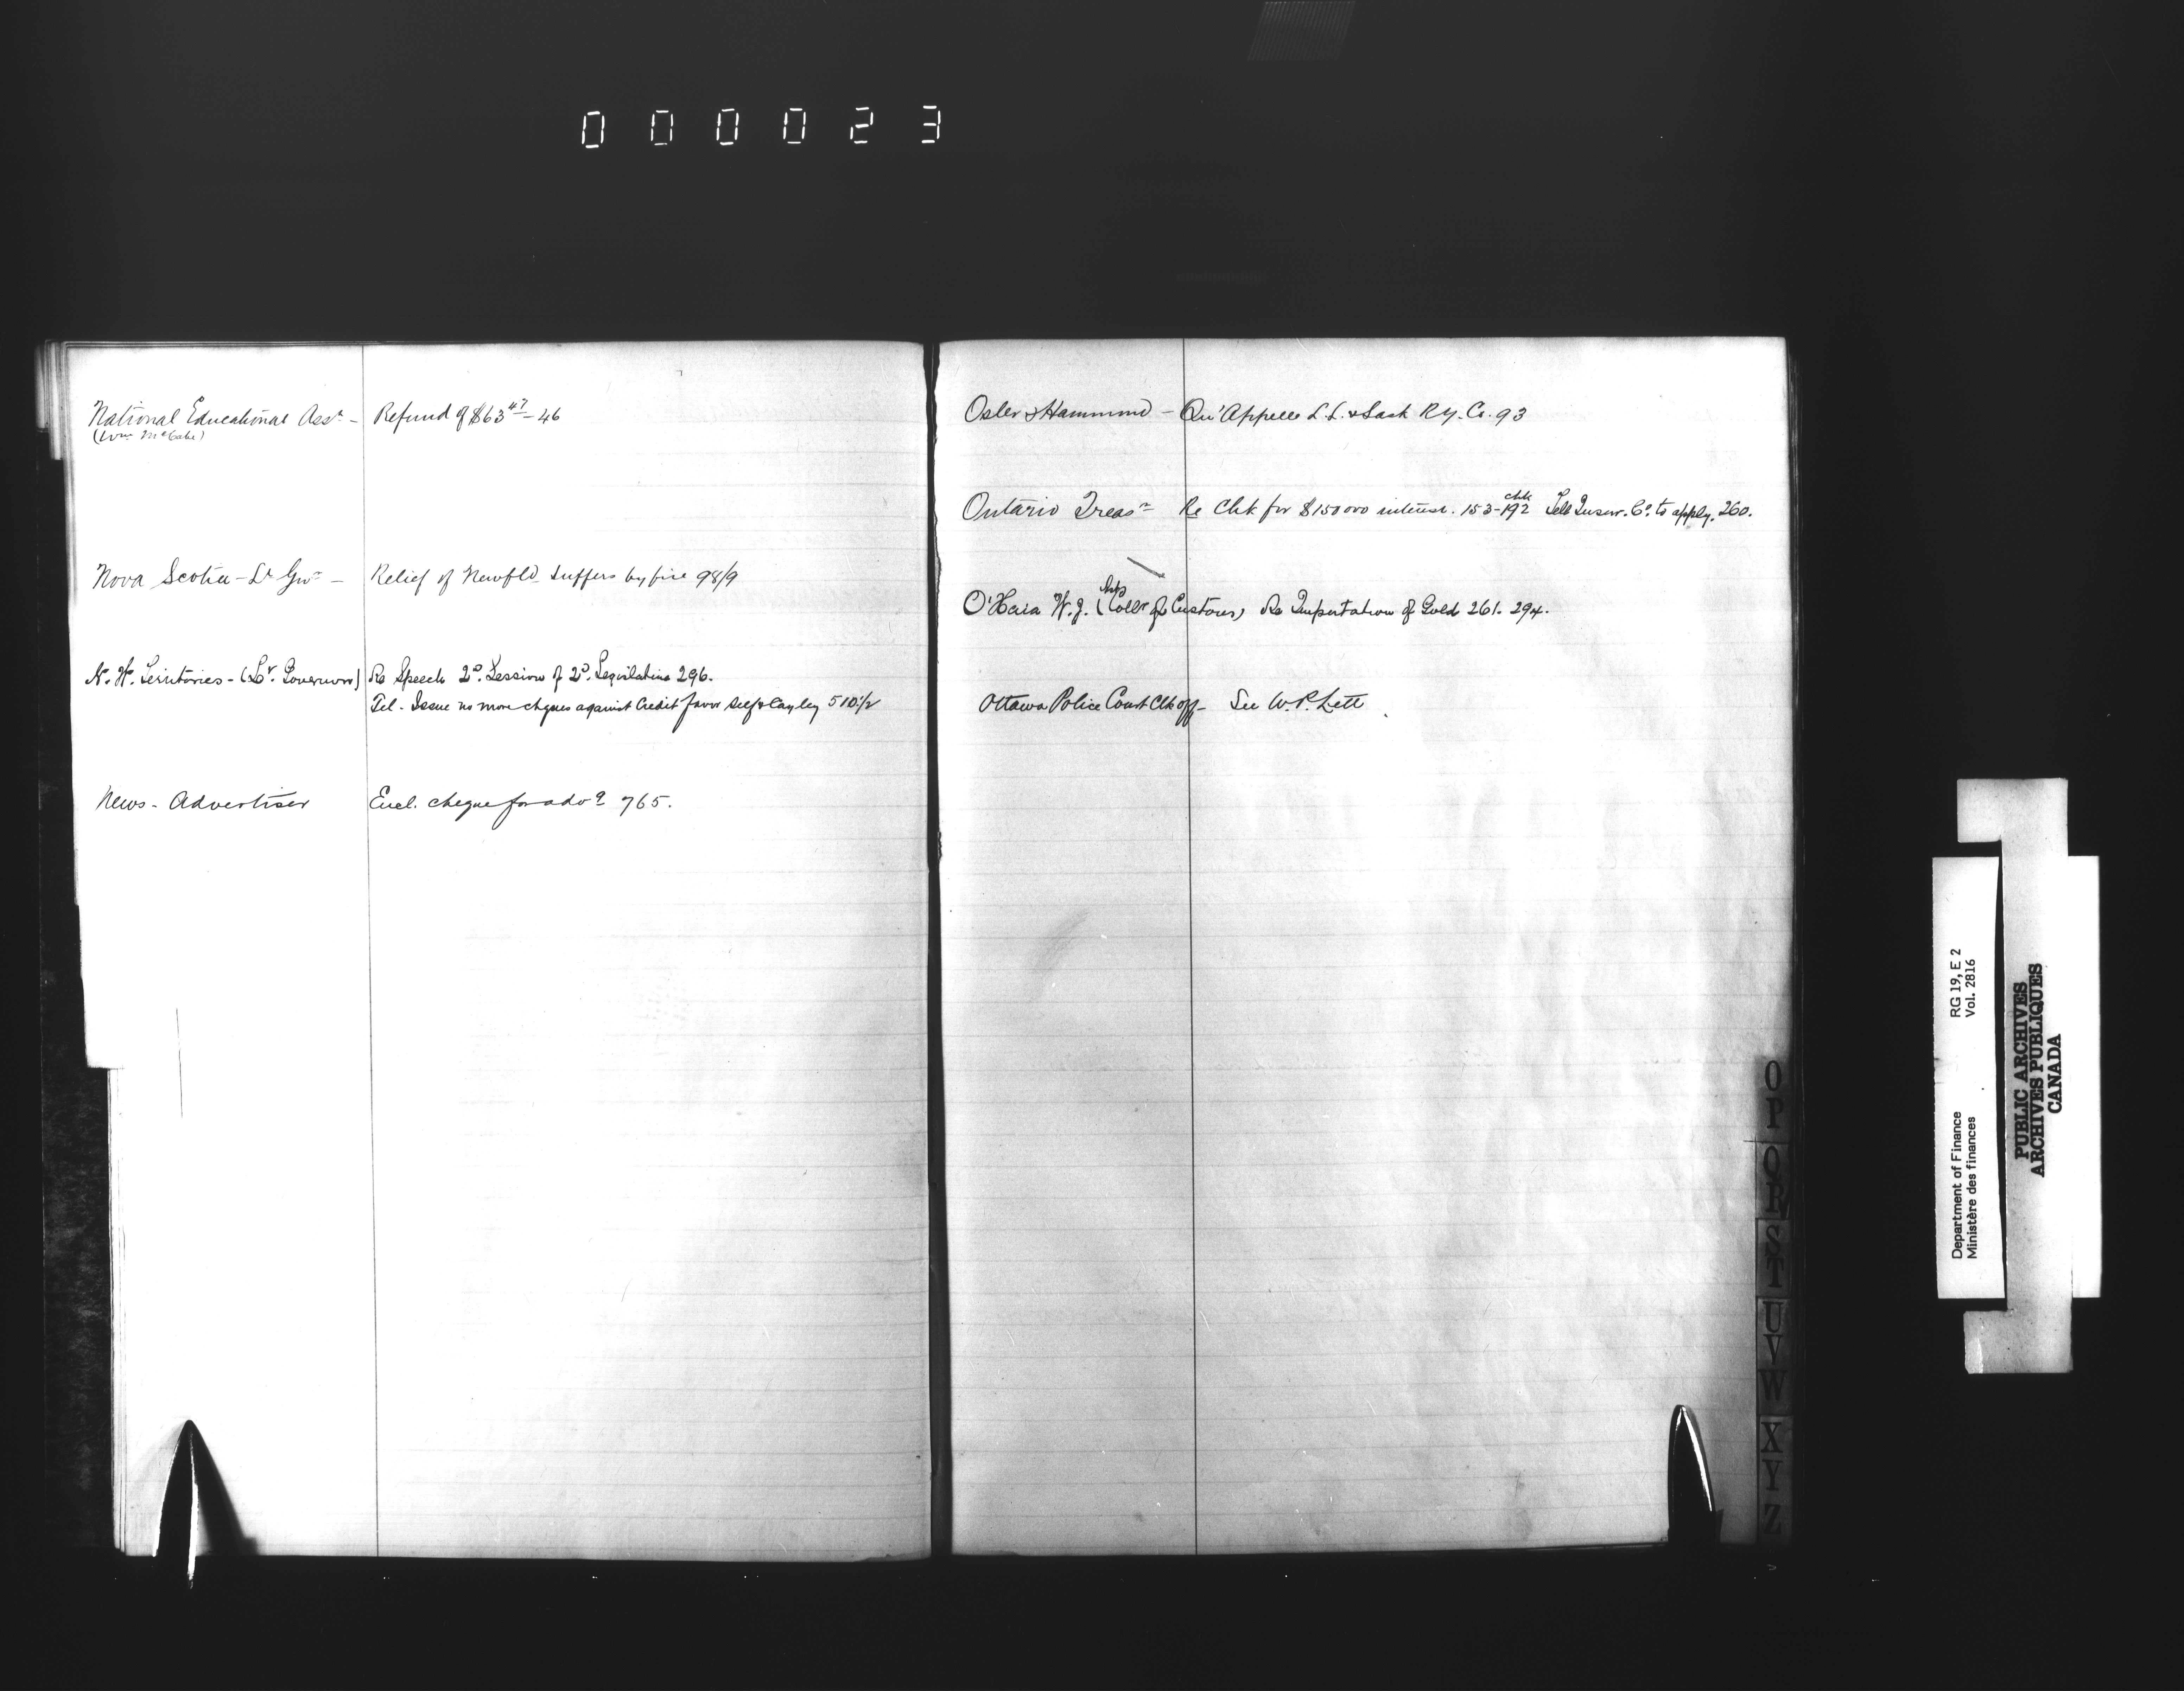 000023
National Educational Assn - Refund of $63 47 - 46
(Wm McCabe)
Nova Scotia - Lt Govr - Relief of Newfld Suffers by fire 98/9
N. W. Territories - (Lt. Governor) Re Speech 2d. Session of 2d. Legislature 296.
Tel - Issue no more cheques against Credit favor Self & Cayley 510½
News - Advertiser Encl. cheque for adv 765.
Osler & Hammond - Qu'Appelle L. L. & Sask Ry. Co. 93
Ontario Treasr Re Chk for $150000 interest. 153-192 chk Tell Insur. Co. to apply. 260.
O'Hara W. J. (Collr of Customs) Re Importation of Gold 261. 294.
Ottawa Police Court Clk off - See W. P. Lett
O
P
Q
R
S
T
U
V
W
X
Y
Z
Department of Finance RG 19, E 2
Ministère des finances Vol. 2816
PUBLIC ARCHIVES
ARCHIVES PUBLIQUES
CANADA